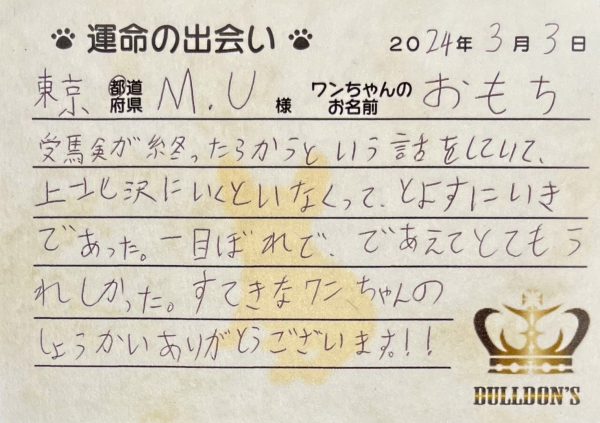 運命の出会い 2024年3月3日
東京 都道府県 M.U 様 ワンちゃんのお名前 おもち
受験が終ったらかうという話をしていて、
上北沢にいくといなくって、とよすにいき
であった。一目ぼれで、であえてとてもう
れしかった。すてきなワンちゃんの
しょうかいありがとうございます!!
BULLDON'S